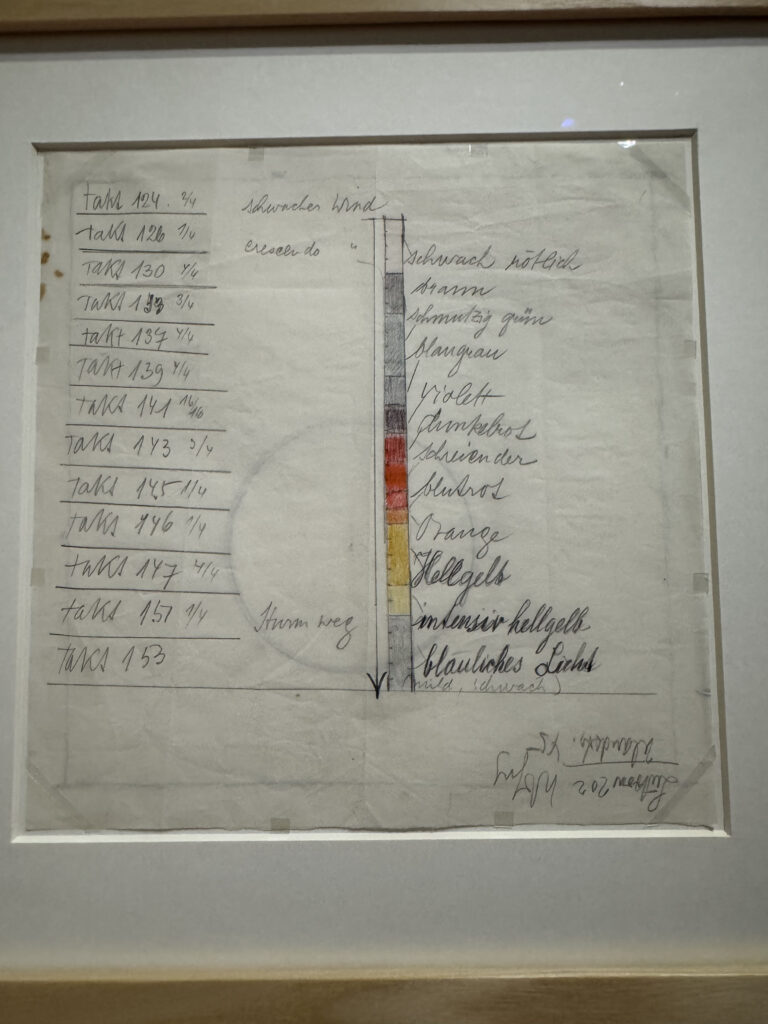 Takt 124. 2/4
Takt 126 1/4
Takt 130 4/4
Takt 133 3/4
Takt 137 4/4
Takt 139 4/4
Takt 141 16/16
Takt 143 3/4
Takt 145 1/4
Takt 146 1/4
Takt 147 4/4
Takt 151 1/4
Takt 153
schwacher Wind
crescendo "
Sturm weg
schwach rötlich
braun
schmutzig grün
blaugrau
violett
dunkelrot
schreiender
blutrot
Orange
Hellgelb
intensiv hellgelb
blauliches Licht
(mild, schwach)